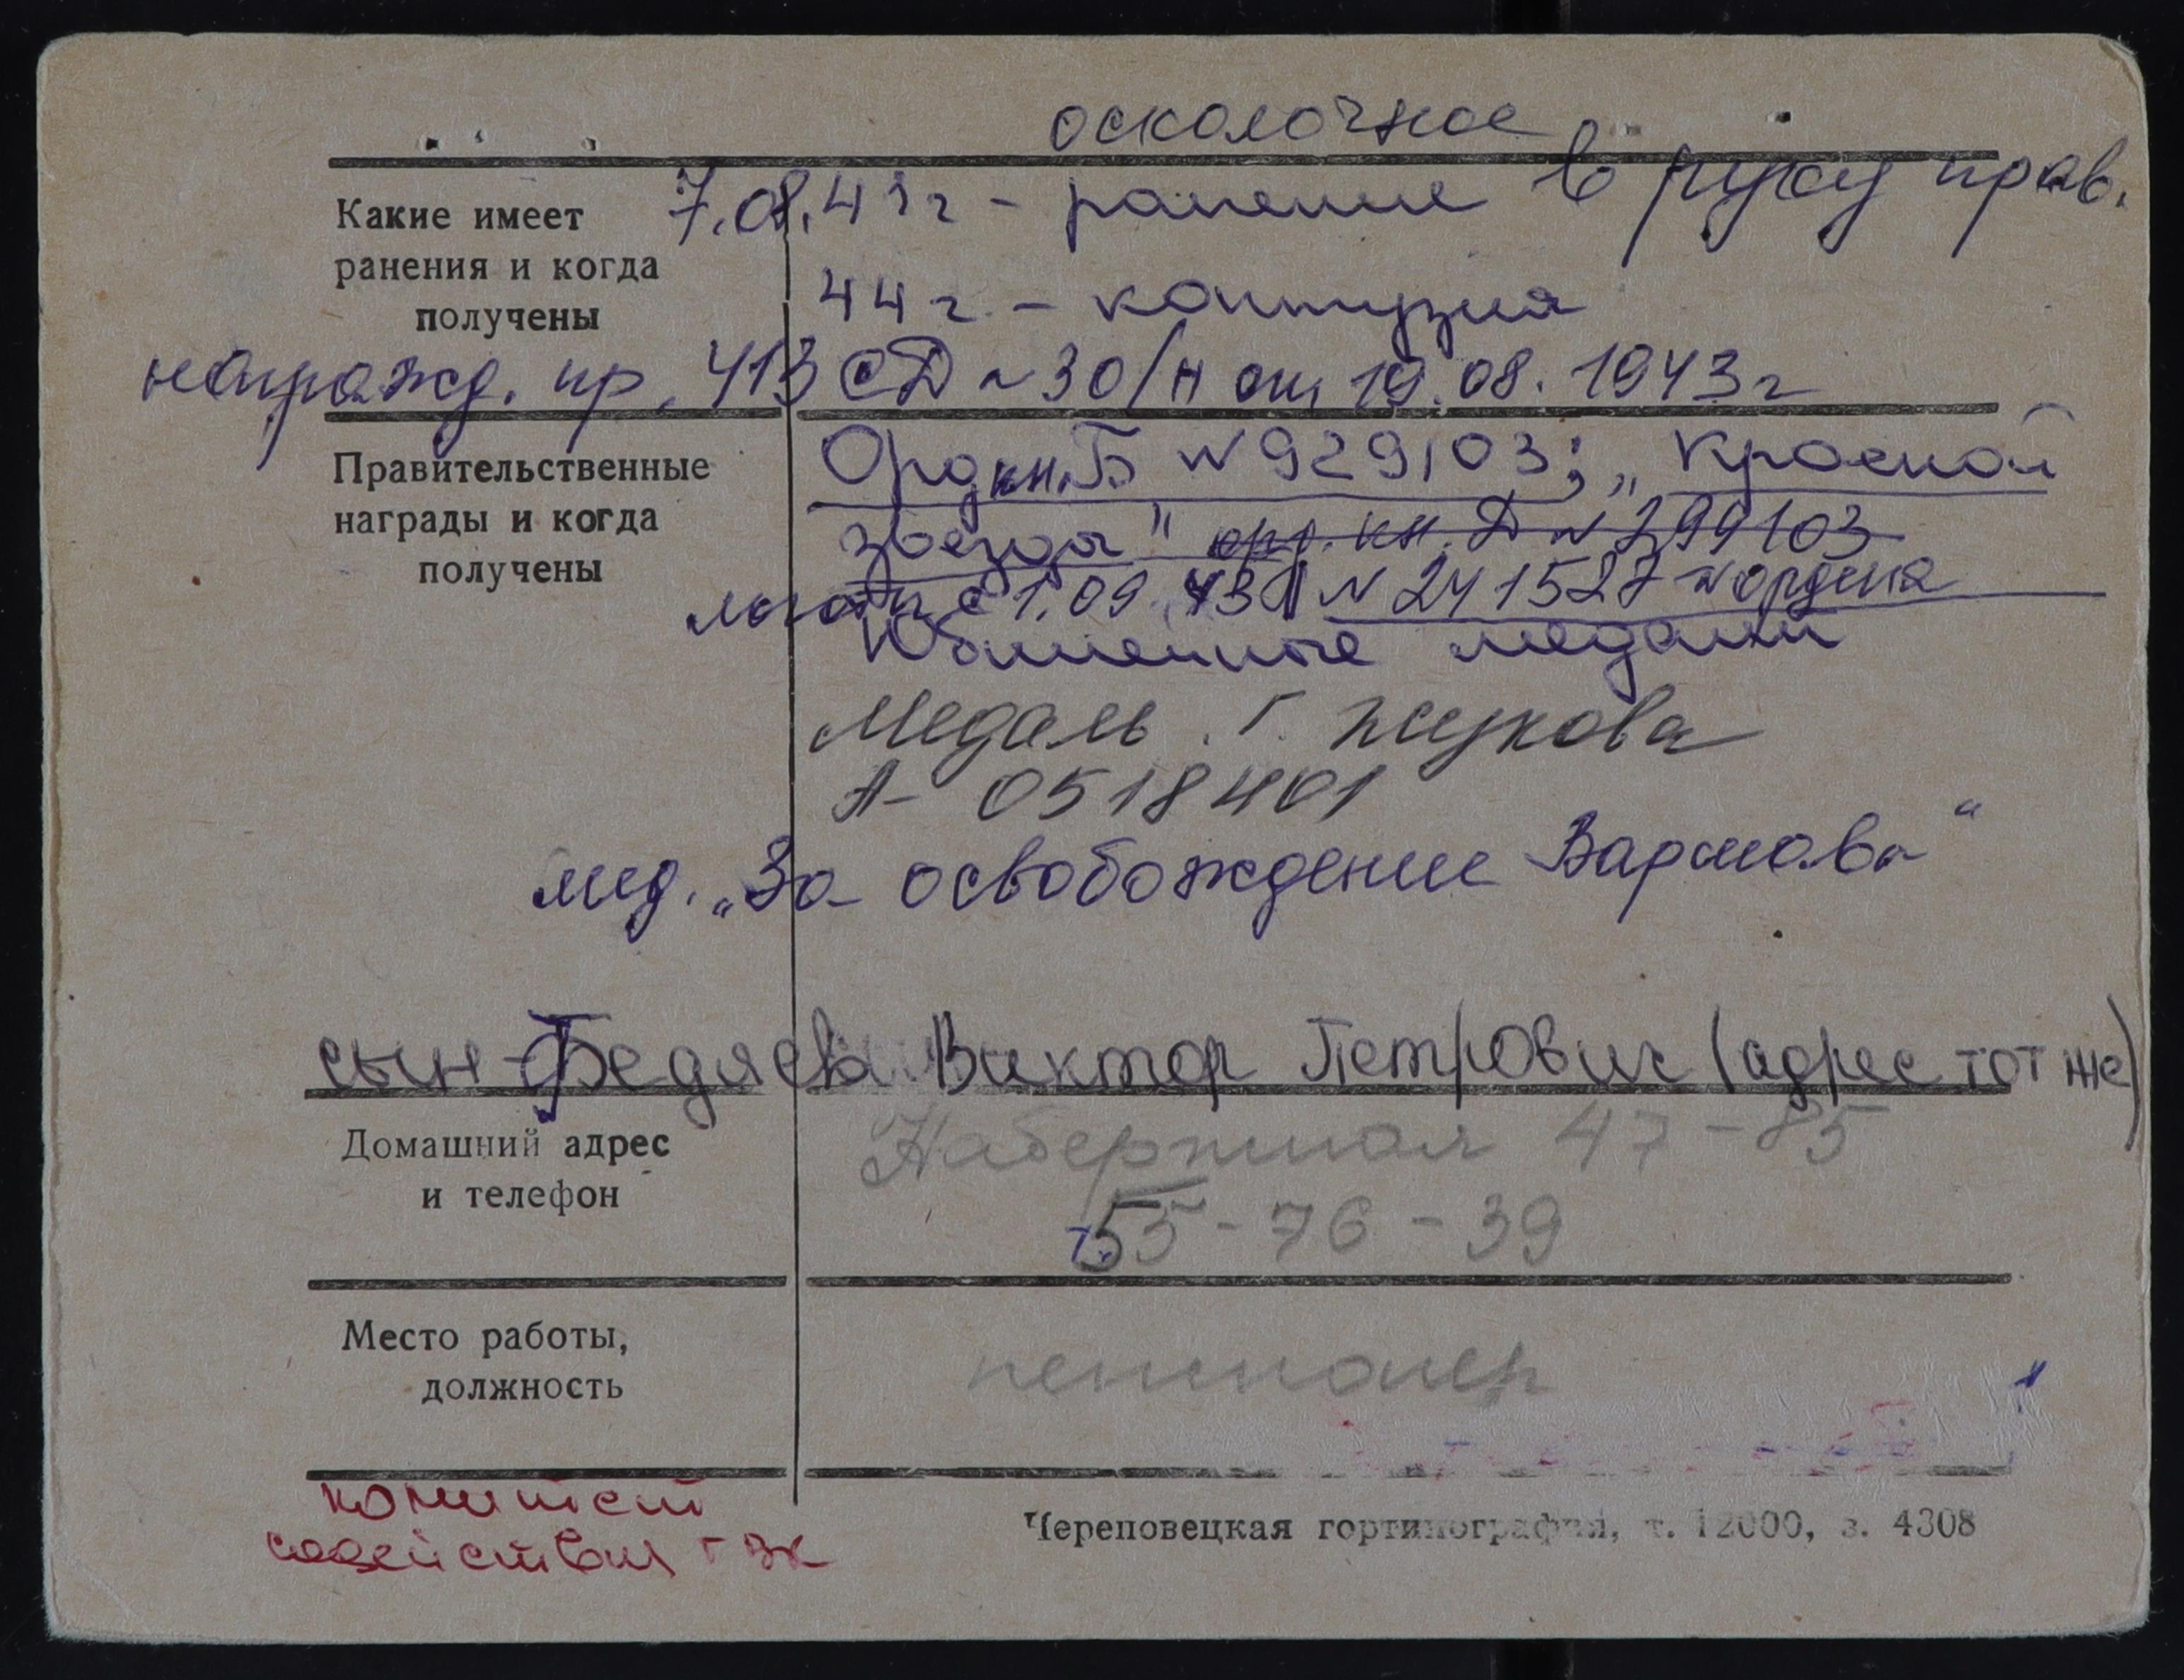 осколочное
Какие имеет ранения и когда получены
7.08.43 г - ранение в руку прав.
44 г - контузия
награжд. пр. 413 СД N 30/н от 19.08.1943 г
Правительственные награды и когда получены
Орд кн. Б N 929103; „Красной
звезды" орд. кн. Д N 299103
льготы с 1.09.43 N 241527 N ордена
Юбилейные медали
Медаль Г. Жукова
А- 0518401
мед. „За освобождение Варшавы"
сын - Федяев Виктор Петрович (адрес тот же)
Домашний адрес и телефон
Набережная 47-85
т. 55-76-39
Место работы, должность
пенсионер
комитет
содействия ГВК
Череповецкая гортипография, т. 12000, з. 4308